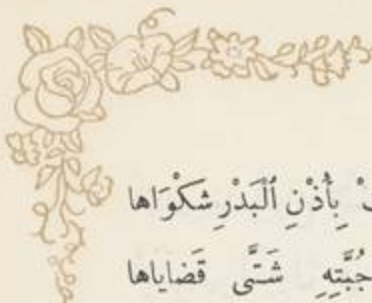 بِأُذْنِ ٱلْبَدْرِ شَكْوَاها
جُبَّتِهِ شَتَّى قَضاياها